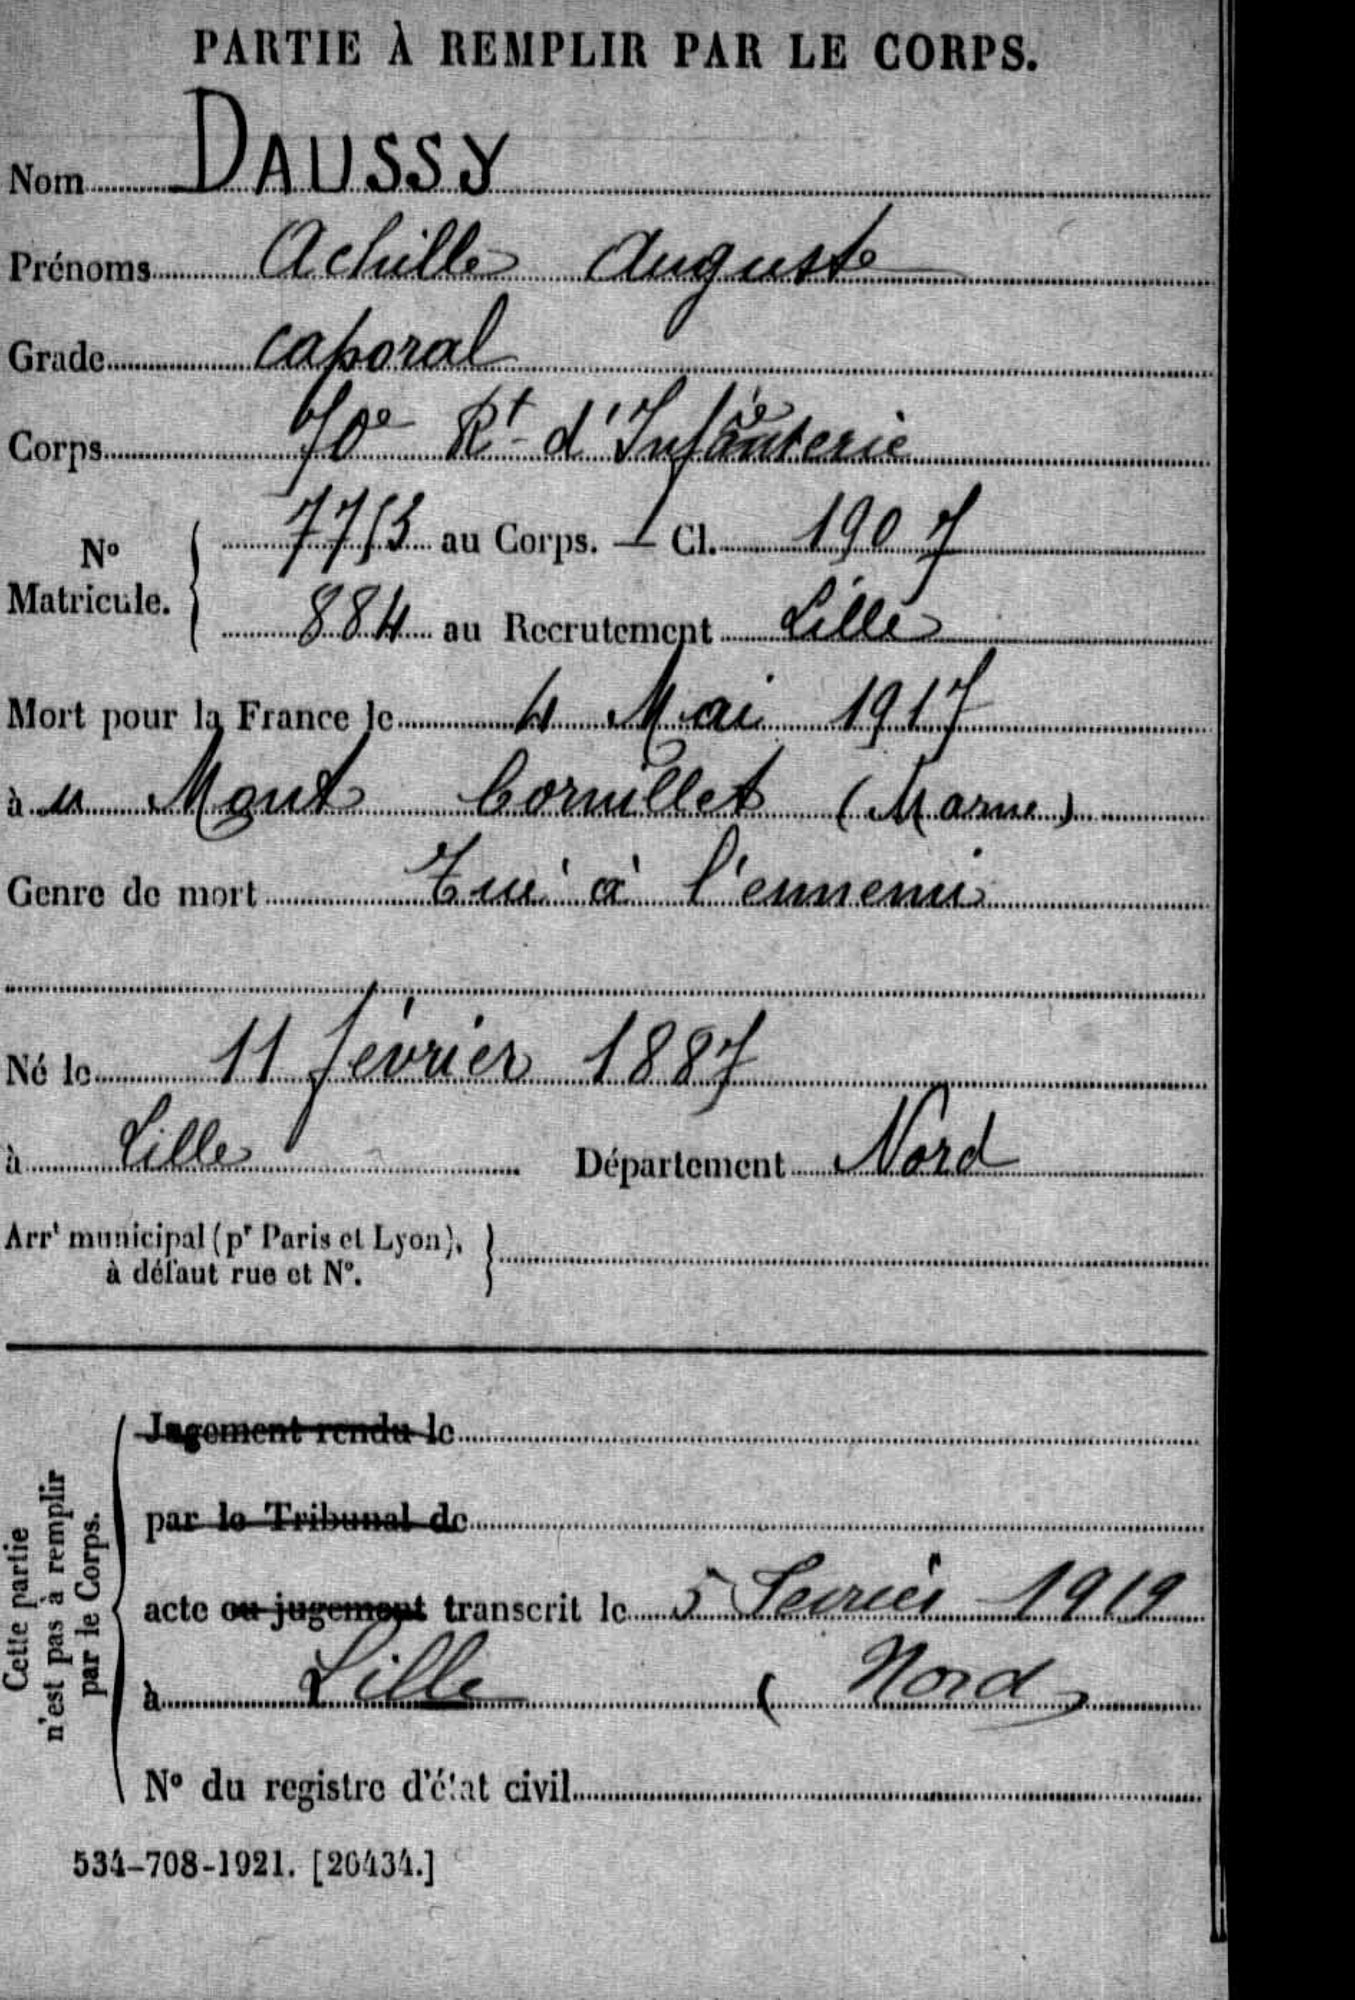 PARTIE À REMPLIR PAR LE CORPS.
Nom DAUSSY
Prénoms Achille Auguste
Grade caporal
Corps 70e Rt d'Infanterie
No Matricule. { 7753 au Corps. — Cl. 1907
884 au Recrutement Lille
Mort pour la France le 4 Mai 1917
à u Mont Cornillet (Marne)
Genre de mort Tué à l'ennemi
Né le 11 février 1887
à Lille Département Nord
Arrt municipal (pr Paris et Lyon), }
à défaut rue et No.
Cette partie
n'est pas à remplir
par le Corps.
Jugement rendu le
par le Tribunal de
acte ou jugement transcrit le 5 Fevrier 1919
à Lille ( Nord )
No du registre d'état civil
534-708-1921. [26434.]